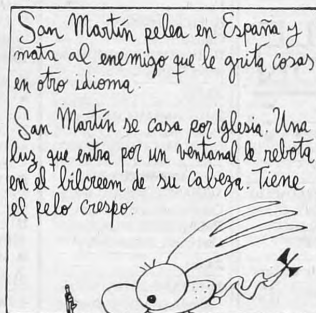 San Martín pelea en España y
mata al enemigo que le grita cosas
en otro idioma.
San Martín se casa por Iglesia. Una
luz que entra por un ventanal le rebota
en el bilcreem de su cabeza. Tiene
el pelo crespo.